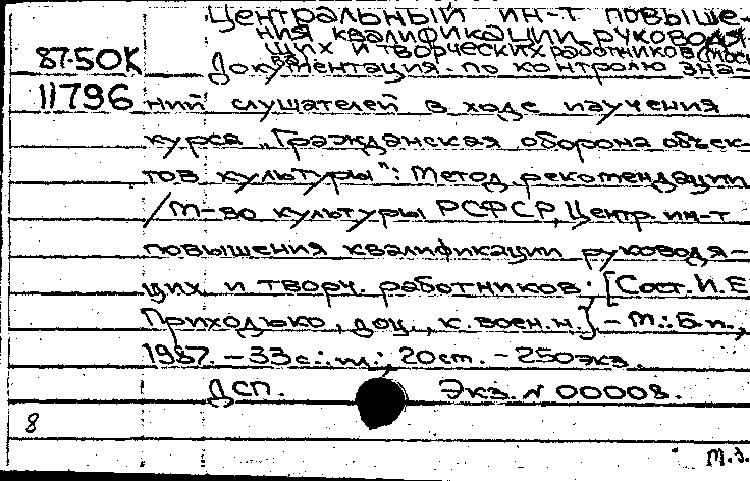 Центральный ин-т повыше-
ния квалификации руководя-
щих и творческих работников (Моск
87-50К Документация по контролю зна-
11796 ний слушателей в ходе изучения
курса „Гражданская оборона объек-
тов культуры": Метод. рекомендации
/М-во культуры РСФСР, Центр. ин-т
повышения квалификации руководя-
щих и творч. работников; [Сост. И.Е.
Приходько, доц., к. воен. н.] - М.: Б.и.,
1987. - 33 с.: ил.; 20 см. - 250 экз.
ДСП. Экз. N 00008.
8